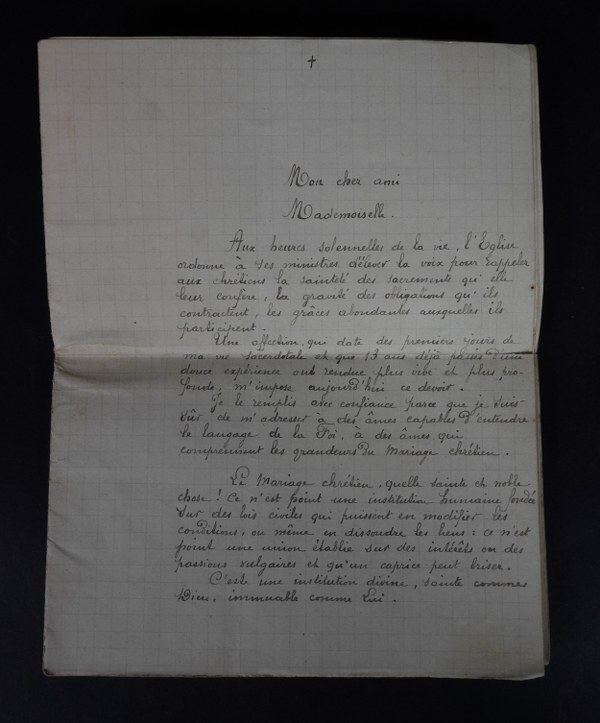 Mon cher ami
Mademoiselle.
Aux heures solennelles de la vie, l'Eglise
ordonne à ses ministres d'élever la voix pour rappeler
aux chrétiens la sainteté des sacrements qu'elle
leur confère, la gravité des obligations qu'ils
contractent, les grâces abondantes auxquelles ils
participent.
Une affection qui date des premiers jours de
ma vie sacerdotale et que 13 ans déjà passés d'une
douce expérience ont rendue plus vive et plus pro-
fonde, m'impose aujourd'hui ce devoir.
Je le remplis avec confiance parce que je suis
sûr de m'adresser à des âmes capables d'entendre
le langage de la Foi, à des âmes qui
comprennent les grandeurs du Mariage chrétien.
Le Mariage chrétien, quelle sainte et noble
chose! Ce n'est point une institution humaine fondée
sur des lois civiles qui puissent en modifier les
conditions, ou même en dissoudre les liens: ce n'est
point une union établie sur des intérêts ou des
passions vulgaires et qu'un caprice peut briser.
C'est une institution divine, sainte comme
Dieu, immuable comme Lui.